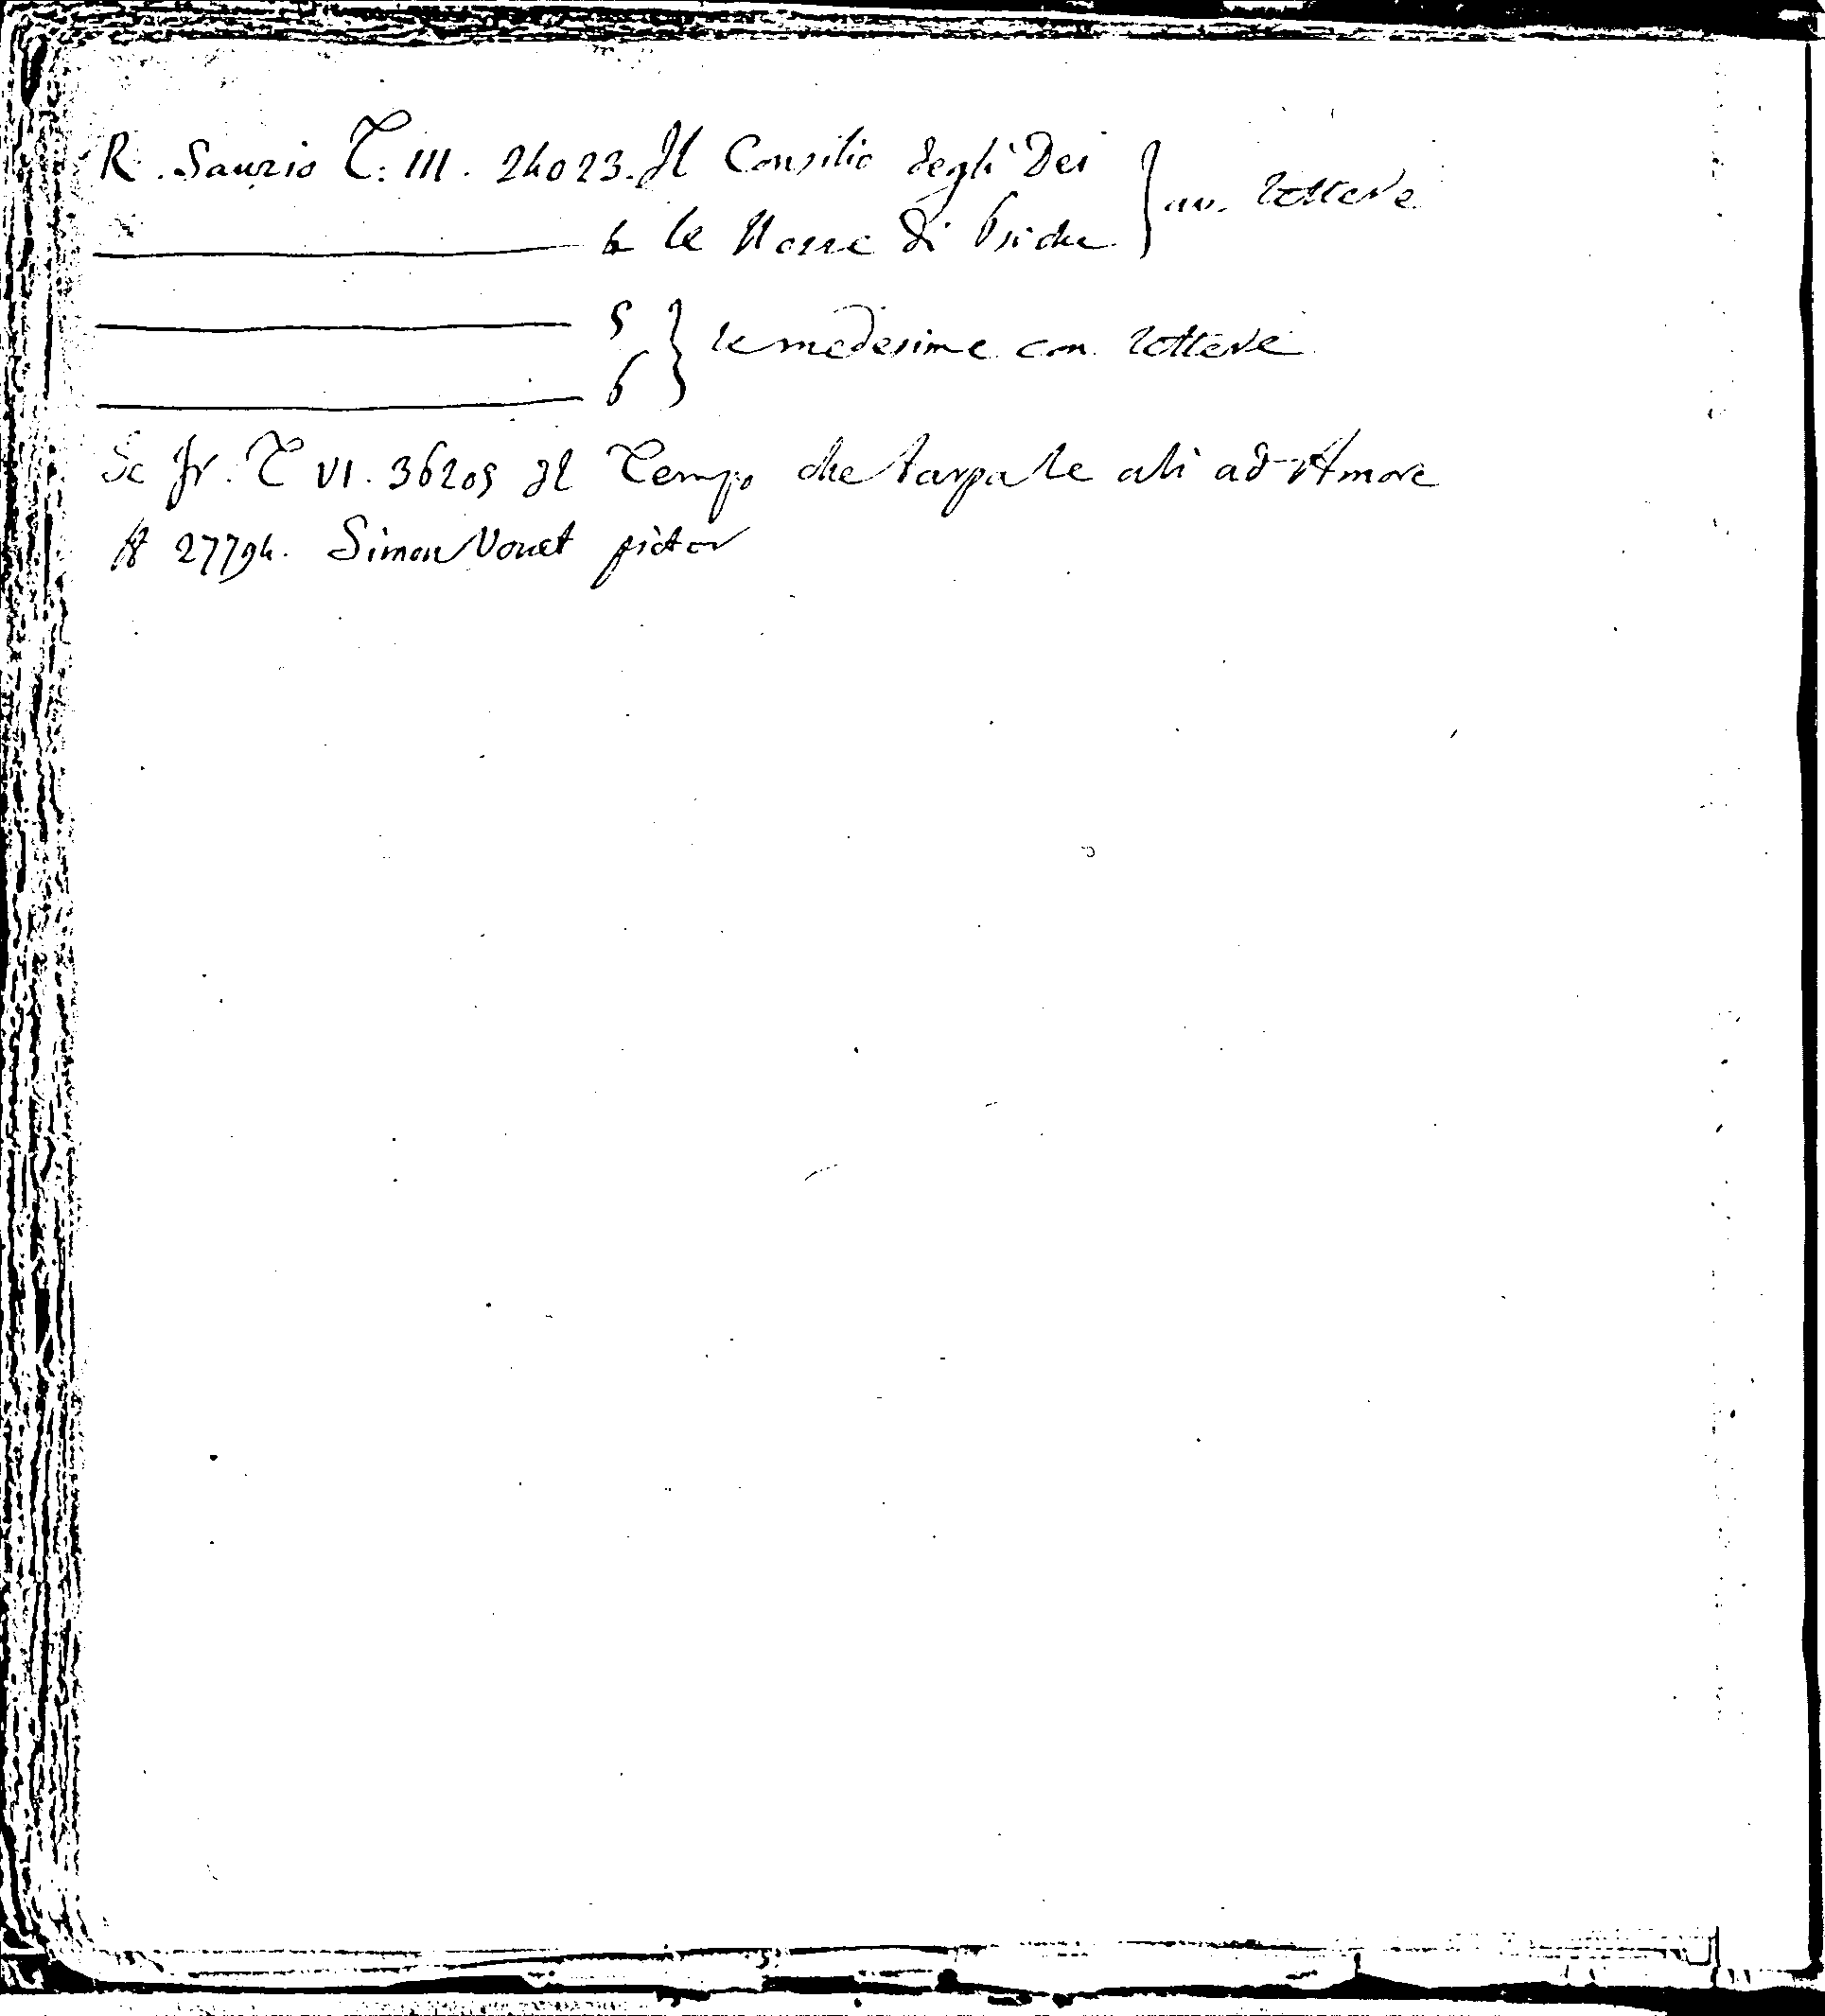 R. Sanzio T. III. 24023. Il Consilio degli Dei } av. lettere
4 le Nozze di Psiche
5 } le medesime con lettere
6
Sc fr. T VI. 36205 Il Tempo che tarpa le ali ad Amore
27794. Simon Vouet pictor